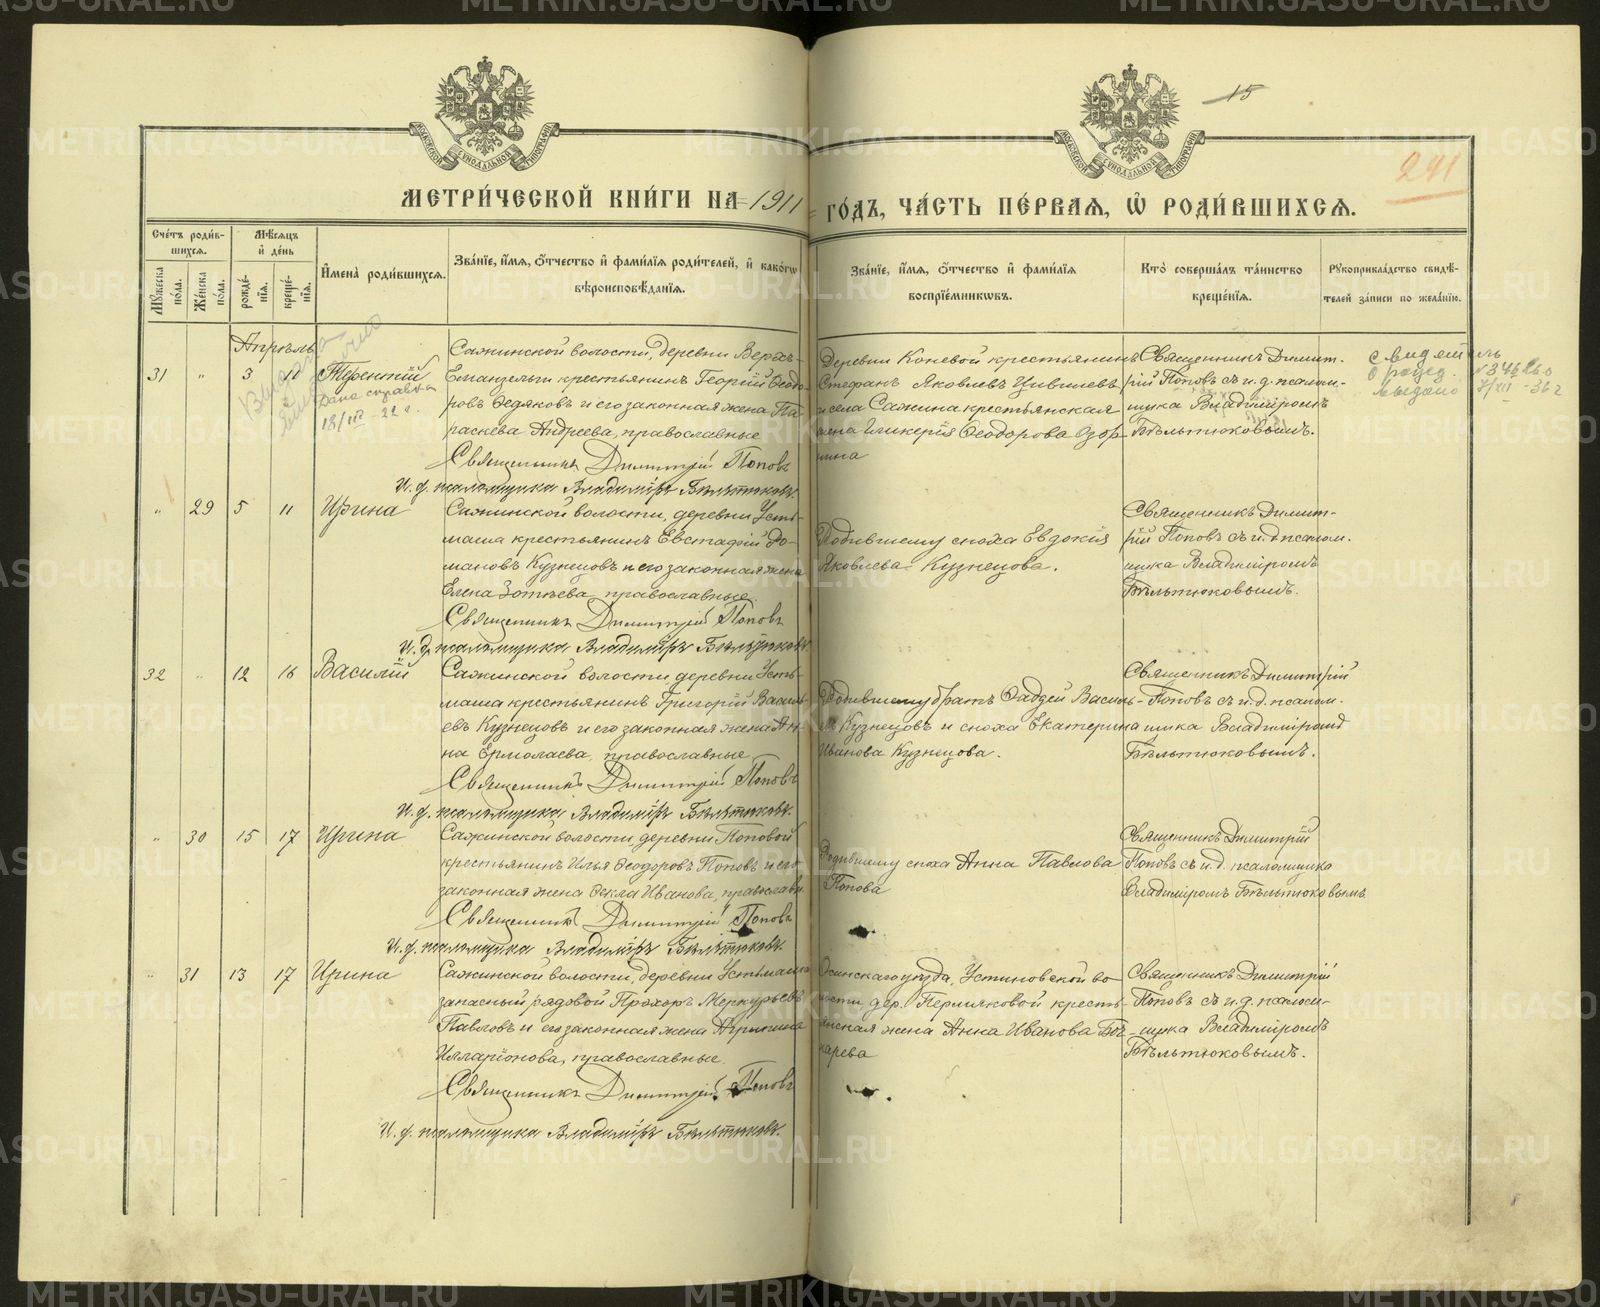 МОСКОВСКОЙ СѴНОДАЛЬНОЙ ТИПОГРАФІИ
МОСКОВСКОЙ СѴНОДАЛЬНОЙ ТИПОГРАФІИ
15
241
МЕТРИ́ЧЕСКОЙ КНИ́ГИ НА 1911 ГО́ДЪ, ЧА́СТЬ ПЕ́РВАЯ, Ѡ РОДИ́ВШИХСЯ.
Сче́тъ роди́в-
шихся.
Мѣ́сяцъ
и де́нь
Мꙋ́жеска по́ла.
Же́нска по́ла.
рожде́-
нїя.
креще́-
нїя.
И҆мена̀ роди́вшихся.
Зва́нїе, и҆́мя, ѻ҆́тчество и҆ фами́лїя роди́телей, и҆ како́гѡ
вѣроисповѣ́данїя.
Зва́нїе, и҆́мя, ѻ҆́тчество и҆ фами́лїя
воспрїе́мникѡвъ.
Кто̀ соверша́лъ та́инство
креще́нїя.
Рꙋкоприкла́дство свидѣ́-
телей за́писи по жела́нїю.
Апрѣль
31 " 3 11 Терентій
Дана справка
18/III - 22 г.
Сажинской волости, деревни Верхъ-
Емангельги крестьянинъ Георгій Ѳеодо-
ровъ Ѳедяковъ и его законная жена Па-
раскева Андреева, православные
Священникъ Димитрій Поповъ
И. д. псаломщика Владиміръ Бѣльтюковъ.
Деревни Коневой крестьянинъ
Стефанъ Яковлевъ Цивилевъ
и села Сажина крестьянская
жена Гликерія Ѳеодорова Озор-
нина
Священникъ Димит-
рій Поповъ съ и. д. псалом-
щика Владиміромъ
Бѣльтюковымъ.
Свидѣтель
о рожд. №346
выдано 7/VII - 36 г
" 29 5 11 Ирина
Сажинской волости, деревни Усть-
маша крестьянинъ Евстафій Ро-
мановъ Кузнецовъ и его законная жена
Елена Зотѣева, православные.
Священникъ Димитрій Поповъ
И. д. псаломщика Владиміръ Бѣльтюковъ
Родившему сноха Евдокія
Яковлева Кузнецова.
Священникъ Димит-
рій Поповъ съ и. д. псалом-
щика Владиміромъ
Бѣльтюковымъ.
32 " 12 16 Василій
Сажинской волости, деревни Усть-
маша крестьянинъ Григорій Василь-
евъ Кузнецовъ и его законная жена Ан-
на Ермолаева, православные
Священникъ Димитрій Поповъ
И. д. псаломщика Владиміръ Бѣльтюковъ.
Родившему братъ Ѳаддей Василь-
въ Кузнецовъ и сноха Екатерина
Иванова Кузнецова.
Священникъ Димитрій
Поповъ съ и. д. псалом-
щика Владиміромъ
Бѣльтюковымъ.
" 30 15 17 Ирина
Сажинской волости деревни Поповой
крестьянинъ Илья Ѳеодоровъ Поповъ и его
законная жена Ѳекла Иванова, православн.
Священникъ Димитрій Поповъ
И. д. псаломщика Владиміръ Бѣльтюковъ.
Родившему сноха Анна Павлова
Попова
Священникъ Димитрій
Поповъ съ и. д. псаломщика
Владиміромъ Бѣльтюковымъ
" 31 13 17 Ирина
Сажинской волости, деревни Устьмаша
запасный рядовой Прохоръ Меркурьевъ
Павловъ и его законная жена Агрипина
Илларіонова, православные
Священникъ Димитрій Поповъ
И. д. псаломщика Владиміръ Бѣльтюковъ.
Осинскаго уѣзда, Устиновской во
лости дер. Пермяковой кресть-
янская жена Анна Иванова Боч-
карева
Священникъ Димитрій
Поповъ съ и. д. псалом-
щика Владиміромъ
Бѣльтюковымъ.
METRIKI.GASO-URAL.RU